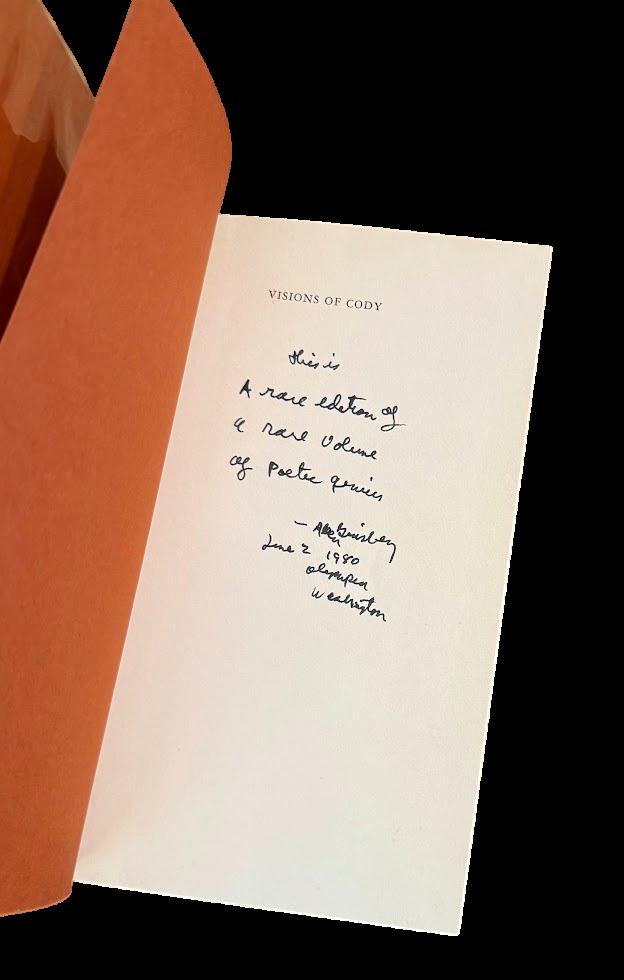 VISIONS OF CODY
this is
A rare edition of
a rare volume
of Poetic genius
— Allen Ginsberg
June 2 1980
Olympia
Washington